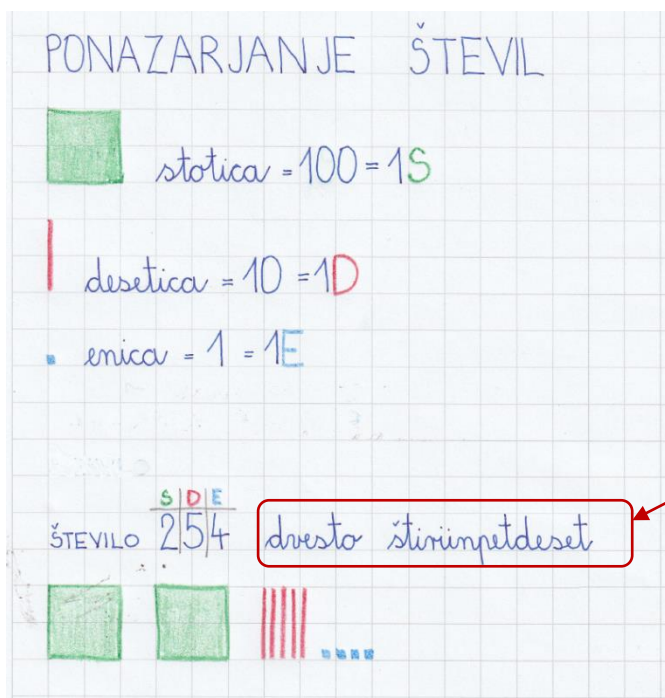 PONAZARJANJE ŠTEVIL
stotica = 100 = 1S
desetica = 10 = 1D
enica = 1 = 1E
S D E
ŠTEVILO 254 dvesto štiriinpetdeset